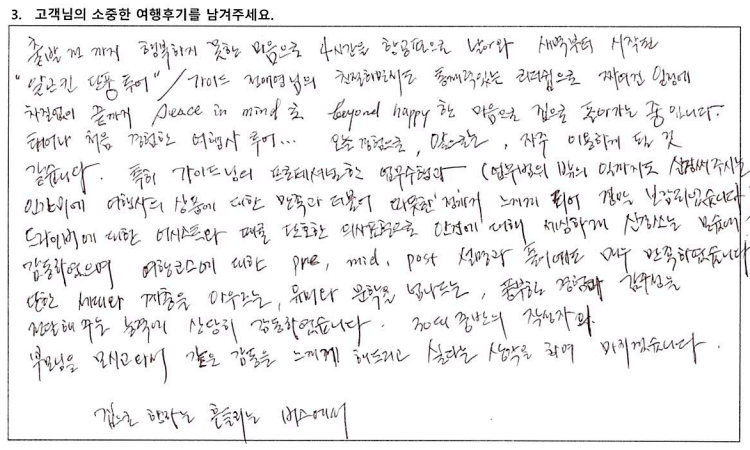 3. 고객님의 소중한 여행후기를 남겨주세요.
출발 전 까지 행복하지 못한 마음으로 4시간을 항공편으로 날아와 새벽부터 시작된
"알곤킨 단풍 투어" / 가이드 정애영님의 친절하면서도 통제력있는 리더쉽으로 짜여진 일정에
차질없이 끝까지 peace in mind 로 beyond happy 한 마음으로 집으로 돌아가는 중 입니다.
태어나 처음 경험한 여행사 투어... 오늘 경험으로, 앞으로는, 자주 이용하게 될 것
같습니다. 특히 가이드님의 프로페셔널한 업무수행과 (업무범위 밖의 일까지도 신경써주시는
인간미에 여행사의 상품에 대한 만족과 더불어 따뜻한 정까지 느끼게 되어 정말 보람되었습니다
드라이버에 대한 어시스트와 때론 단호한 의사표현으로 안전에 대해 세심하게 신경쓰는 모습에
감동하였으며 여행코스에 대한 pre, mid, post 설명과 풀이에도 매우 만족하였습니다
다만 세대와 계층을 아우르는, 유머와 문학을 넘나드는, 풍부한 경험과 감수성을
전달해 주는 능력에 상당히 감동하였습니다. 30대 중반의 작성자가
부모님을 모시고 와서 같은 감동을 느끼게 해드리고 싶다는 생각을 하며 마치겠습니다.
집으로 향하는 흔들리는 버스에서